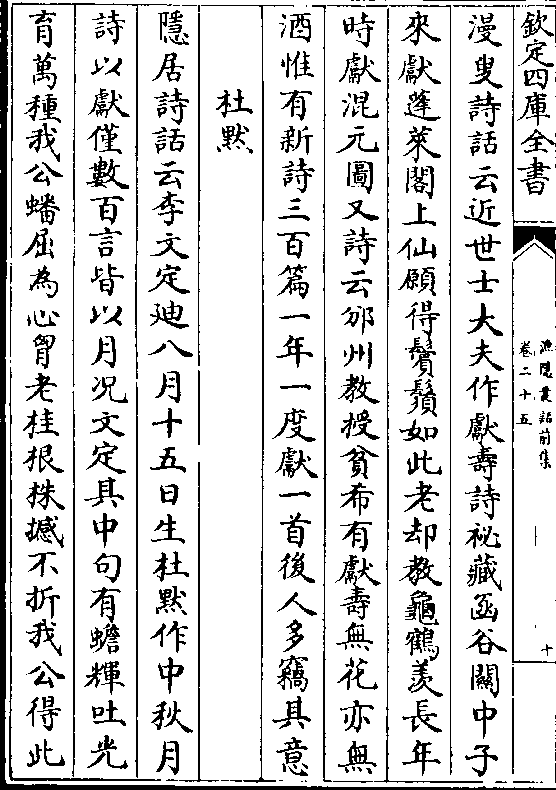 欽定四庫全書
漁隱叢話前集
卷二十五
十
漫叟詩話云近世士大夫作獻壽詩祕藏函谷關中子
來獻蓬萊閣上仙願得鬢鬚如此老却教龜鶴羨長年
時獻混元圖又詩云邠州教授貧希有獻壽無花亦無
酒惟有新詩三百篇一年一度獻一首後人多竊其意
杜默
隱居詩話云李文定廸八月十五日生杜默作中秋月
詩以獻僅數百言皆以月况文定其中句有蟾輝吐光
育萬種我公蟠屈為心胷老桂根株撼不折我公得此